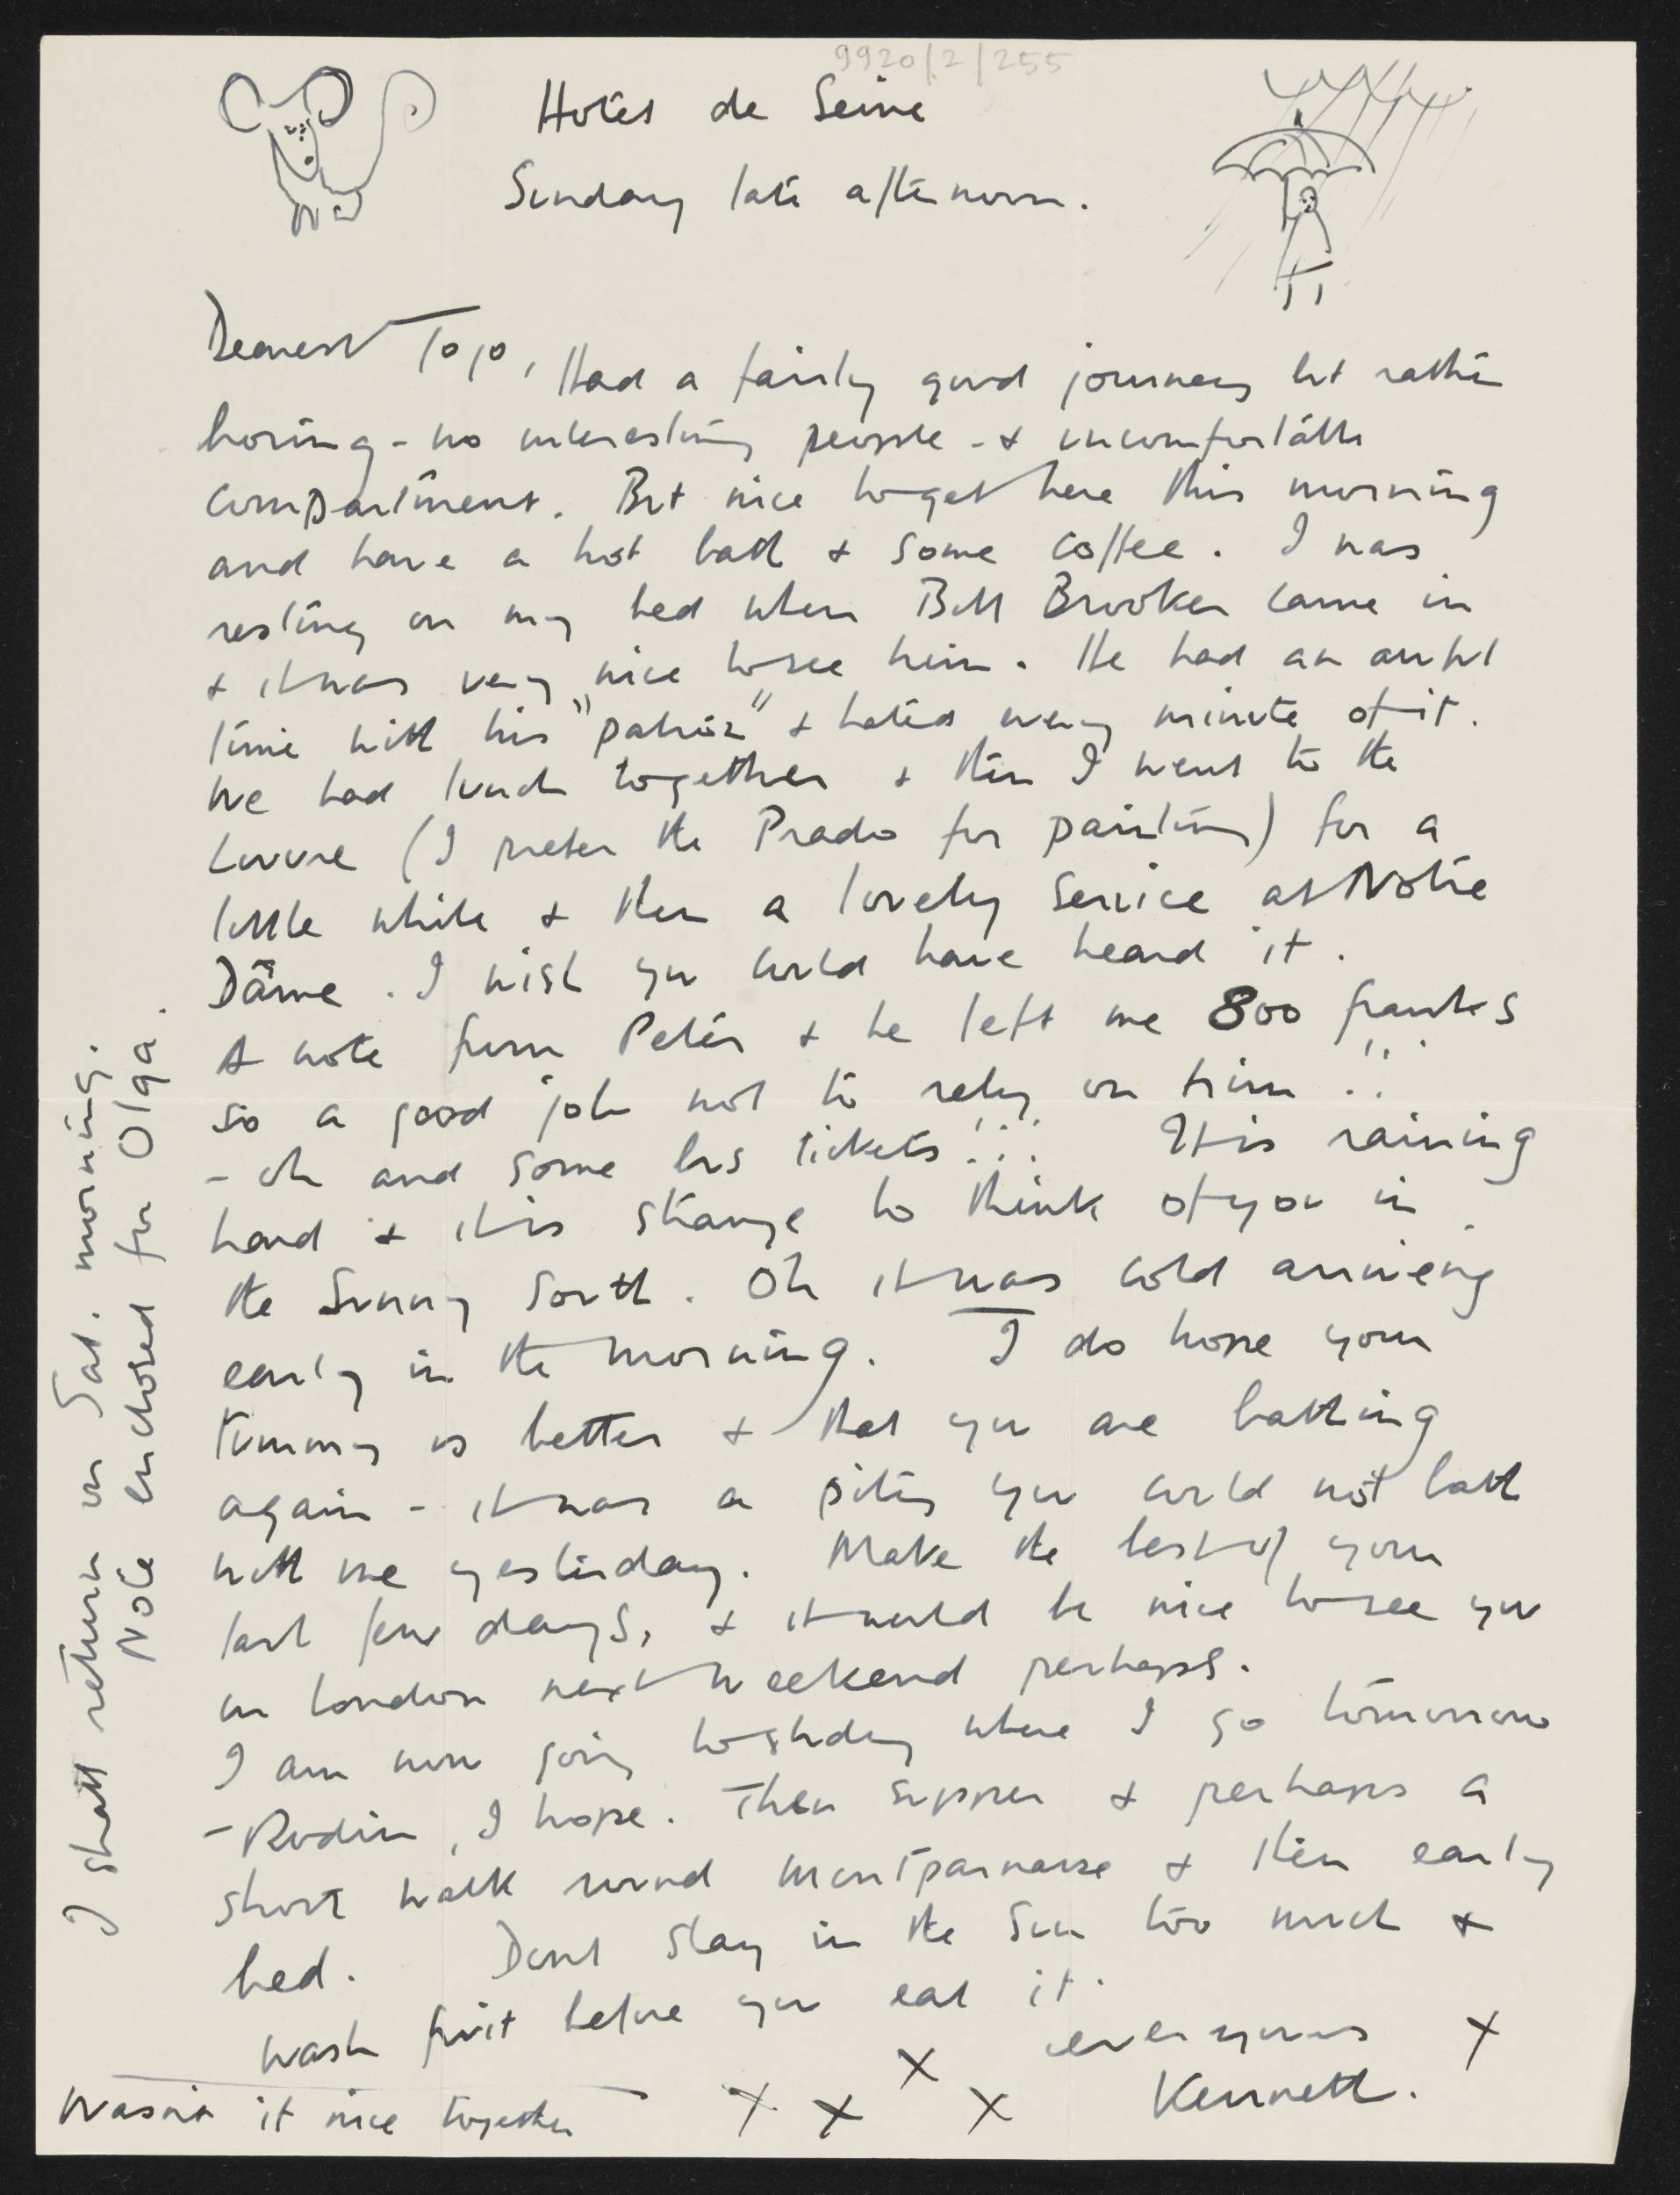 9920/2/255
Hotel de Seine
Sunday late afternoon.
Dearest Jojo, Had a fairly good journey but rather
boring - no interesting people - & uncomfortable
compartment. But nice to get here this morning
and have a hot bath & some coffee. I was
resting on my bed when Bill Brooker came in
& it was very nice to see him. He had an awful
time with his "patron" & hated every minute of it.
We had lunch together & then I went to the
Louvre (I prefer the Prado for painting) for a
little while & then a lovely service at Notre
Dame. I wish you could have heard it.
A note from Peter & he left me 800 franks
so a good job not to rely on him!!
- oh and some bus tickets!!! It is raining
hard & it is strange to think of you in
the Sunny South. Oh it was cold arriveing
early in the morning. I do hope your
tummy is better & that you are bathing
again - it was a pity you could not bath
with me yesterday. Make the best of your
last few days, & it would be nice to see you
in London next weekend perhaps.
I am now going to study where I go tomorrow
- Rodin, I hope. Then supper & perhaps a
short walk round Montparnasse & then early
bed. Dont stay in the sun too much &
wash fruit before you eat it.
ever yours x
Kenneth.
Wasnt it nice together x x x x
I shall return on Sat. morning.
Note enclosed for Olga.